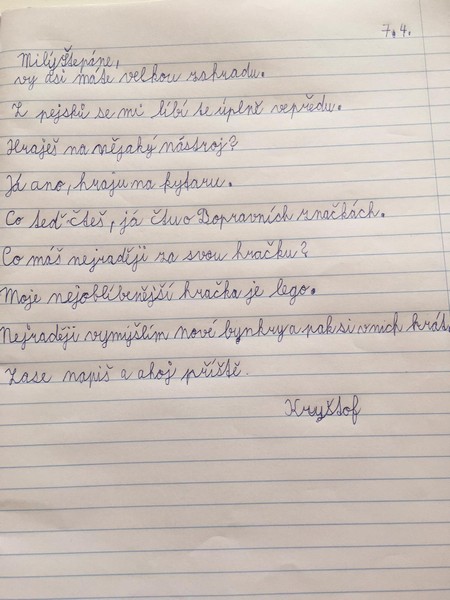 7.4.
Milý Štěpáne,
vy asi máte velkou zahradu.
Z pejsků se mi líbí te úplně vepředu.
Hraješ na nějaký nástroj?
Já ano, hraju na kytaru.
Co teď čteš, já čtu o Dopravních značkách.
Co máš nejraději za svou hračku?
Moje nejoblíbenější hračka je lego.
Nejraději vymýšlím nové bynkry a pak si vnich hrát.
Zase napiš a ahoj příště.
Kryštof